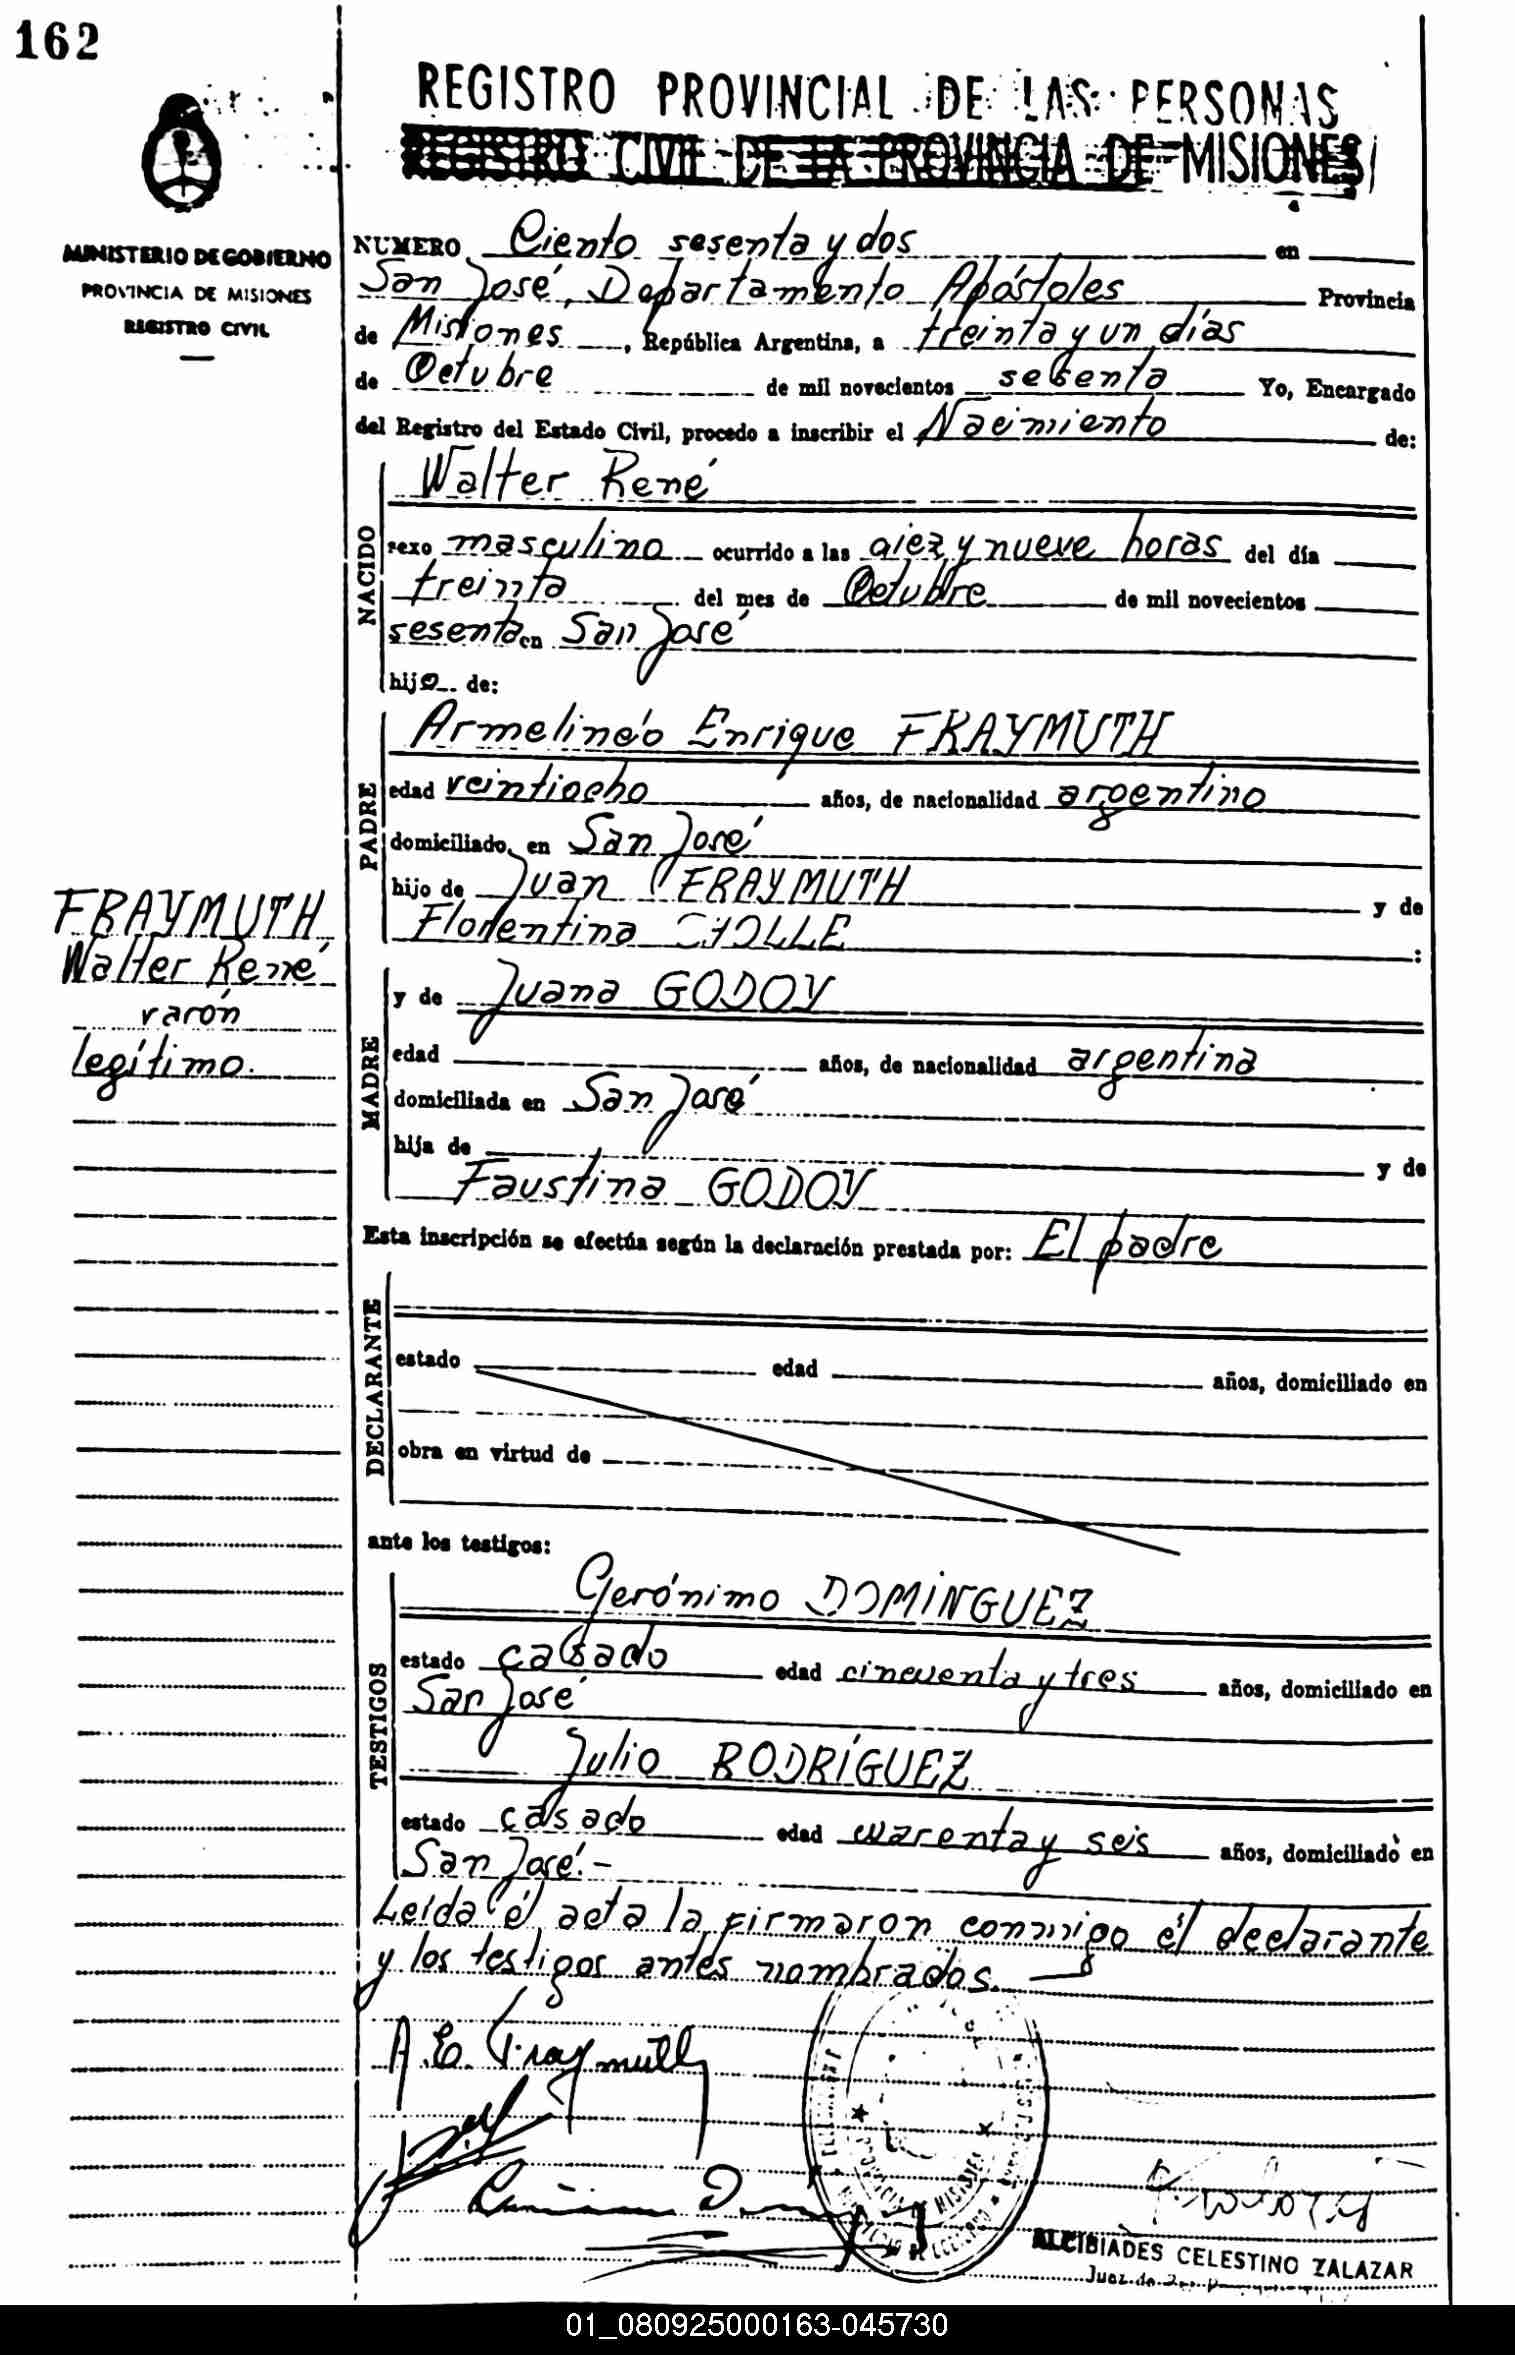 162
REGISTRO PROVINCIAL DE LAS PERSONAS
REGISTRO CIVIL DE LA PROVINCIA DE MISIONES
MINISTERIO DE GOBIERNO
PROVINCIA DE MISIONES
REGISTRO CIVIL
NUMERO Ciento sesenta y dos en
San José, Departamento Apóstoles Provincia
de Misiones, República Argentina, a treinta y un días
de Octubre de mil novecientos sesenta Yo, Encargado
del Registro del Estado Civil, procedo a inscribir el Nacimiento de:
NACIDO
Walter René
sexo masculino ocurrido a las diez y nueve horas del día
treinta del mes de Octubre de mil novecientos
sesenta en San José
hijo de:
PADRE
Armelindo Enrique FRAYMUTH
edad veintiocho años, de nacionalidad argentino
domiciliado en San José
hijo de Juan FRAYMUTH y de
Florentina CHOLLE :
FRAYMUTH
Walter René
varón
legítimo.
MADRE
y de Juana GODOY
edad años, de nacionalidad argentina
domiciliada en San José
hija de y de
Faustina GODOY
Esta inscripción se efectúa según la declaración prestada por: El padre
DECLARANTE
estado edad años, domiciliado en
obra en virtud de
ante los testigos:
TESTIGOS
Gerónimo DOMINGUEZ
estado casado edad cincuenta y tres años, domiciliado en
San José
Julio RODRÍGUEZ
estado casado edad cuarenta y seis años, domiciliado en
San José.-
Leída él acta la firmaron conmigo él declarante
y los testigos antes nombrados.
A. E. Fraymuth
ALCIBIADES CELESTINO ZALAZAR
Juez de Paz
01_080925000163-045730